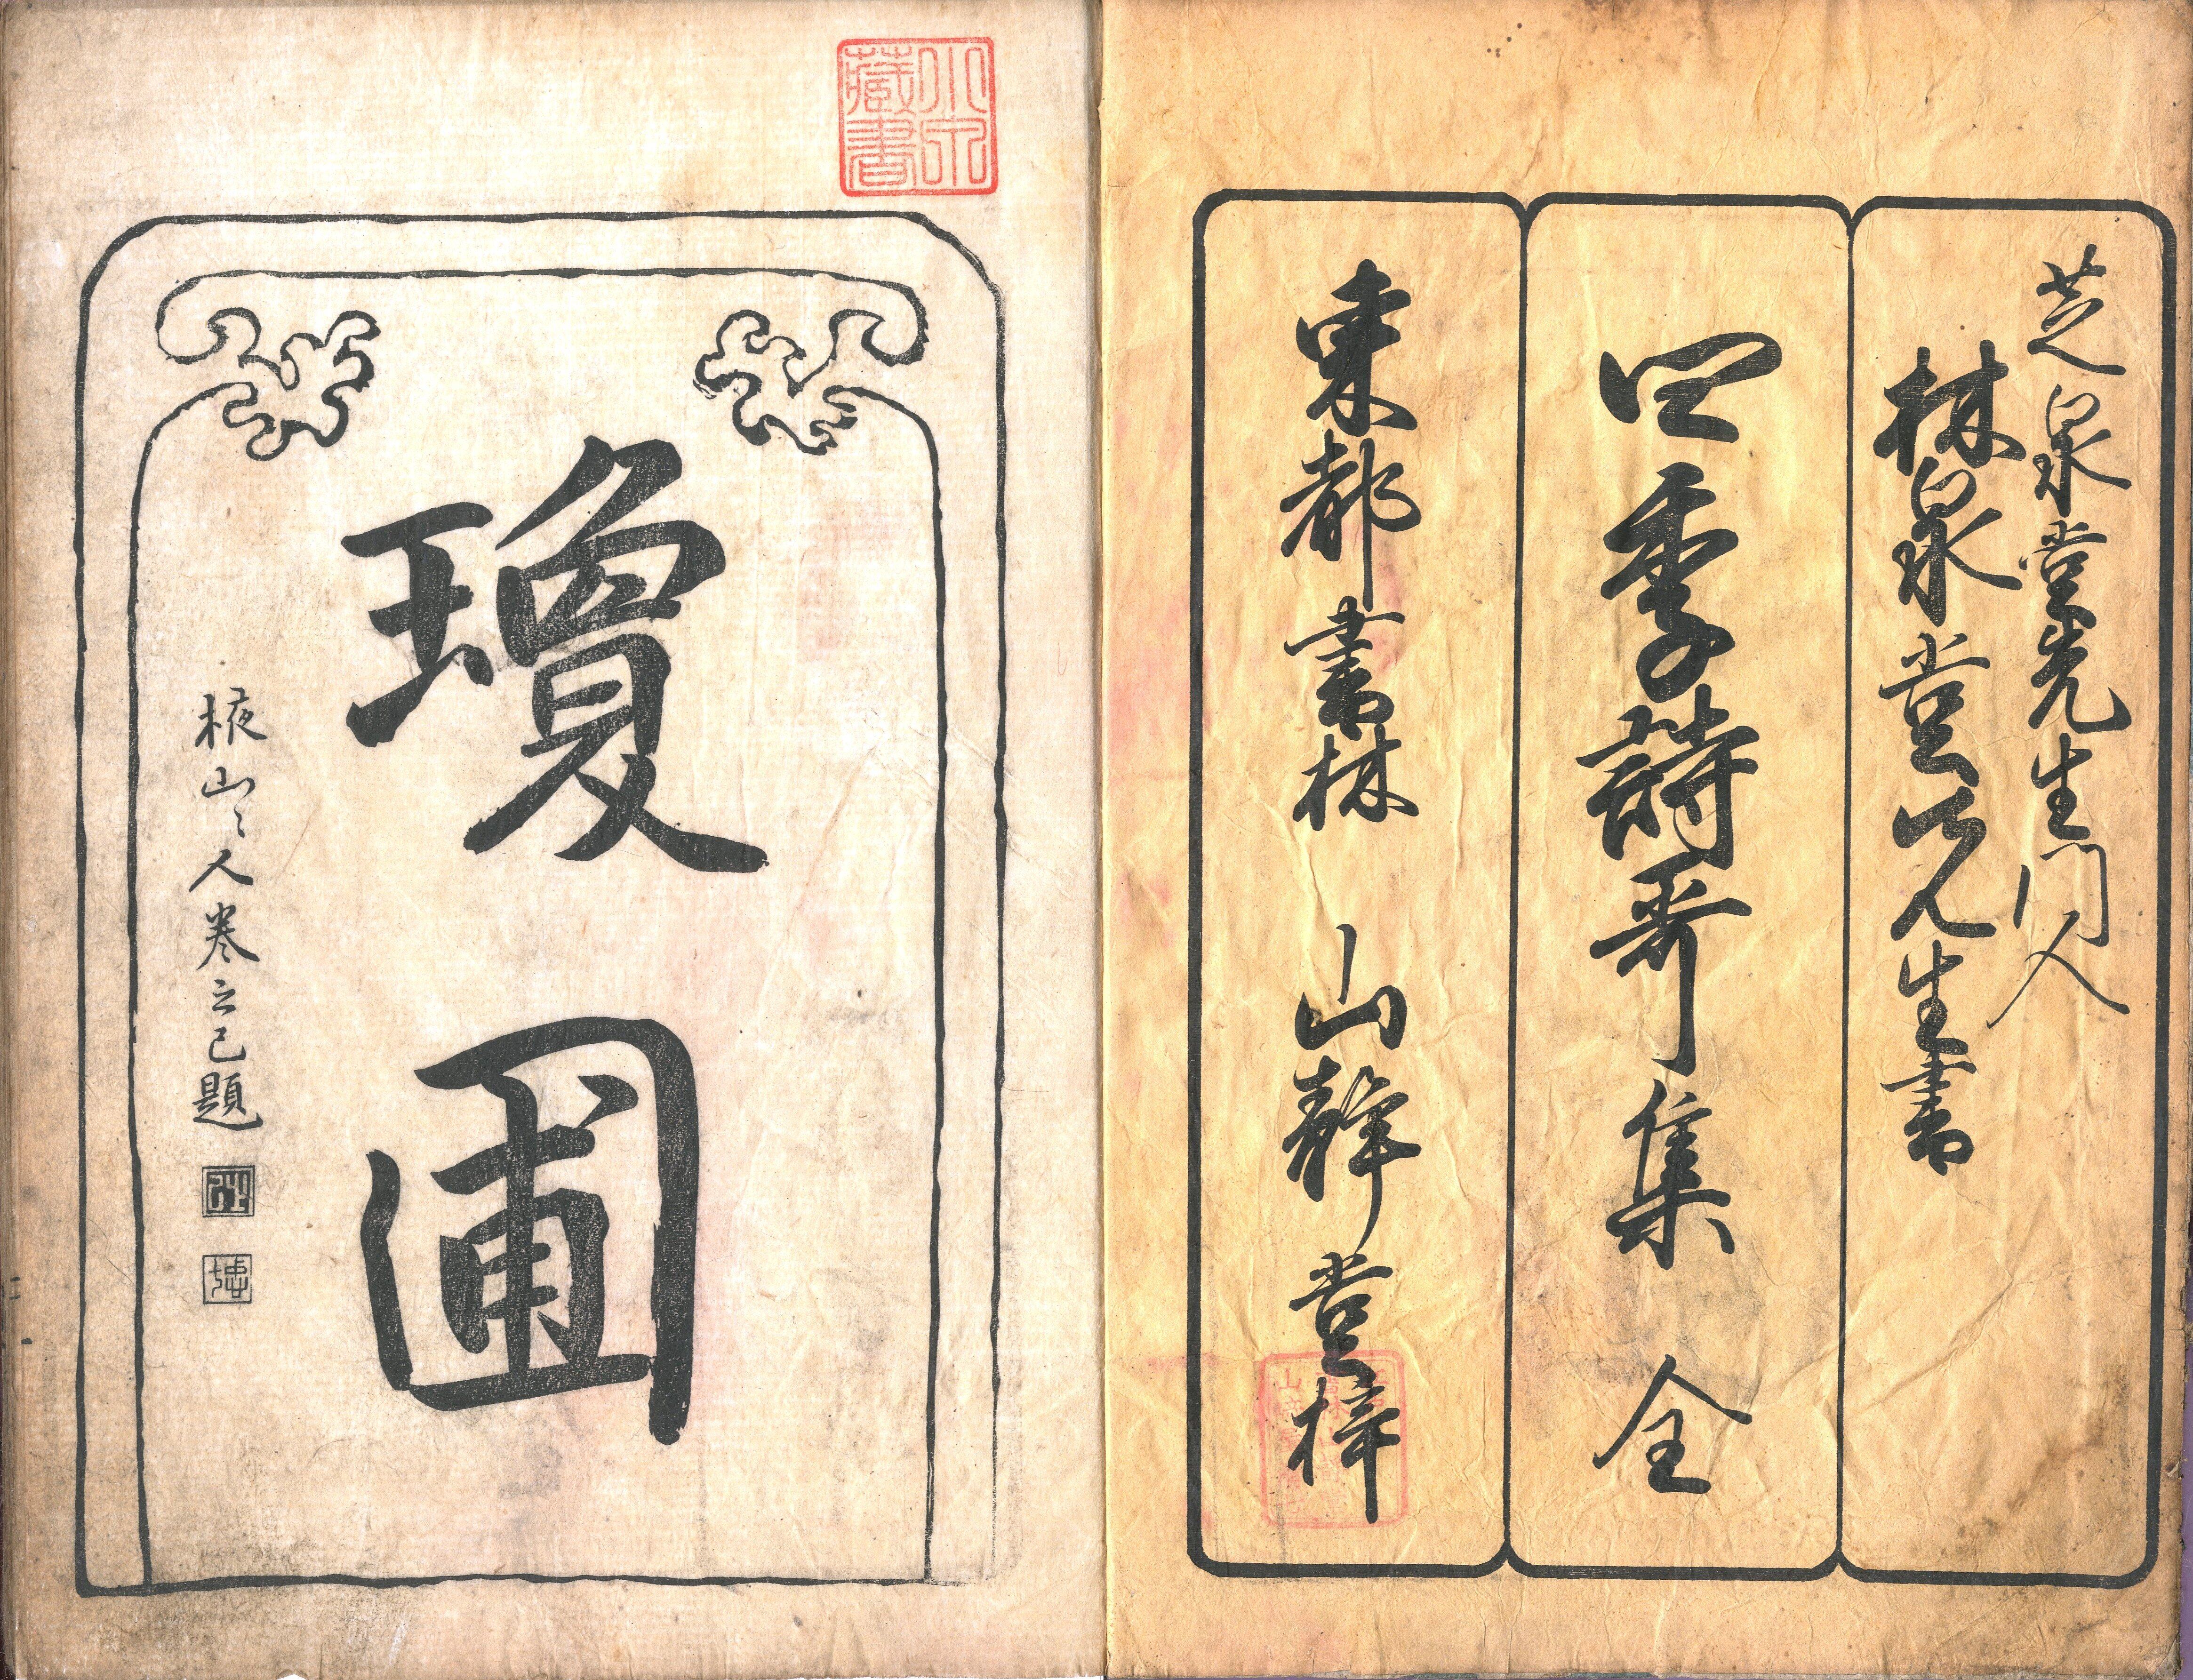 芝泉堂先生門人
林泉堂先生書
四季詩哥集 全
東都書林 山静堂梓
瓊圃
山〻人巻之己題
小泉蔵書